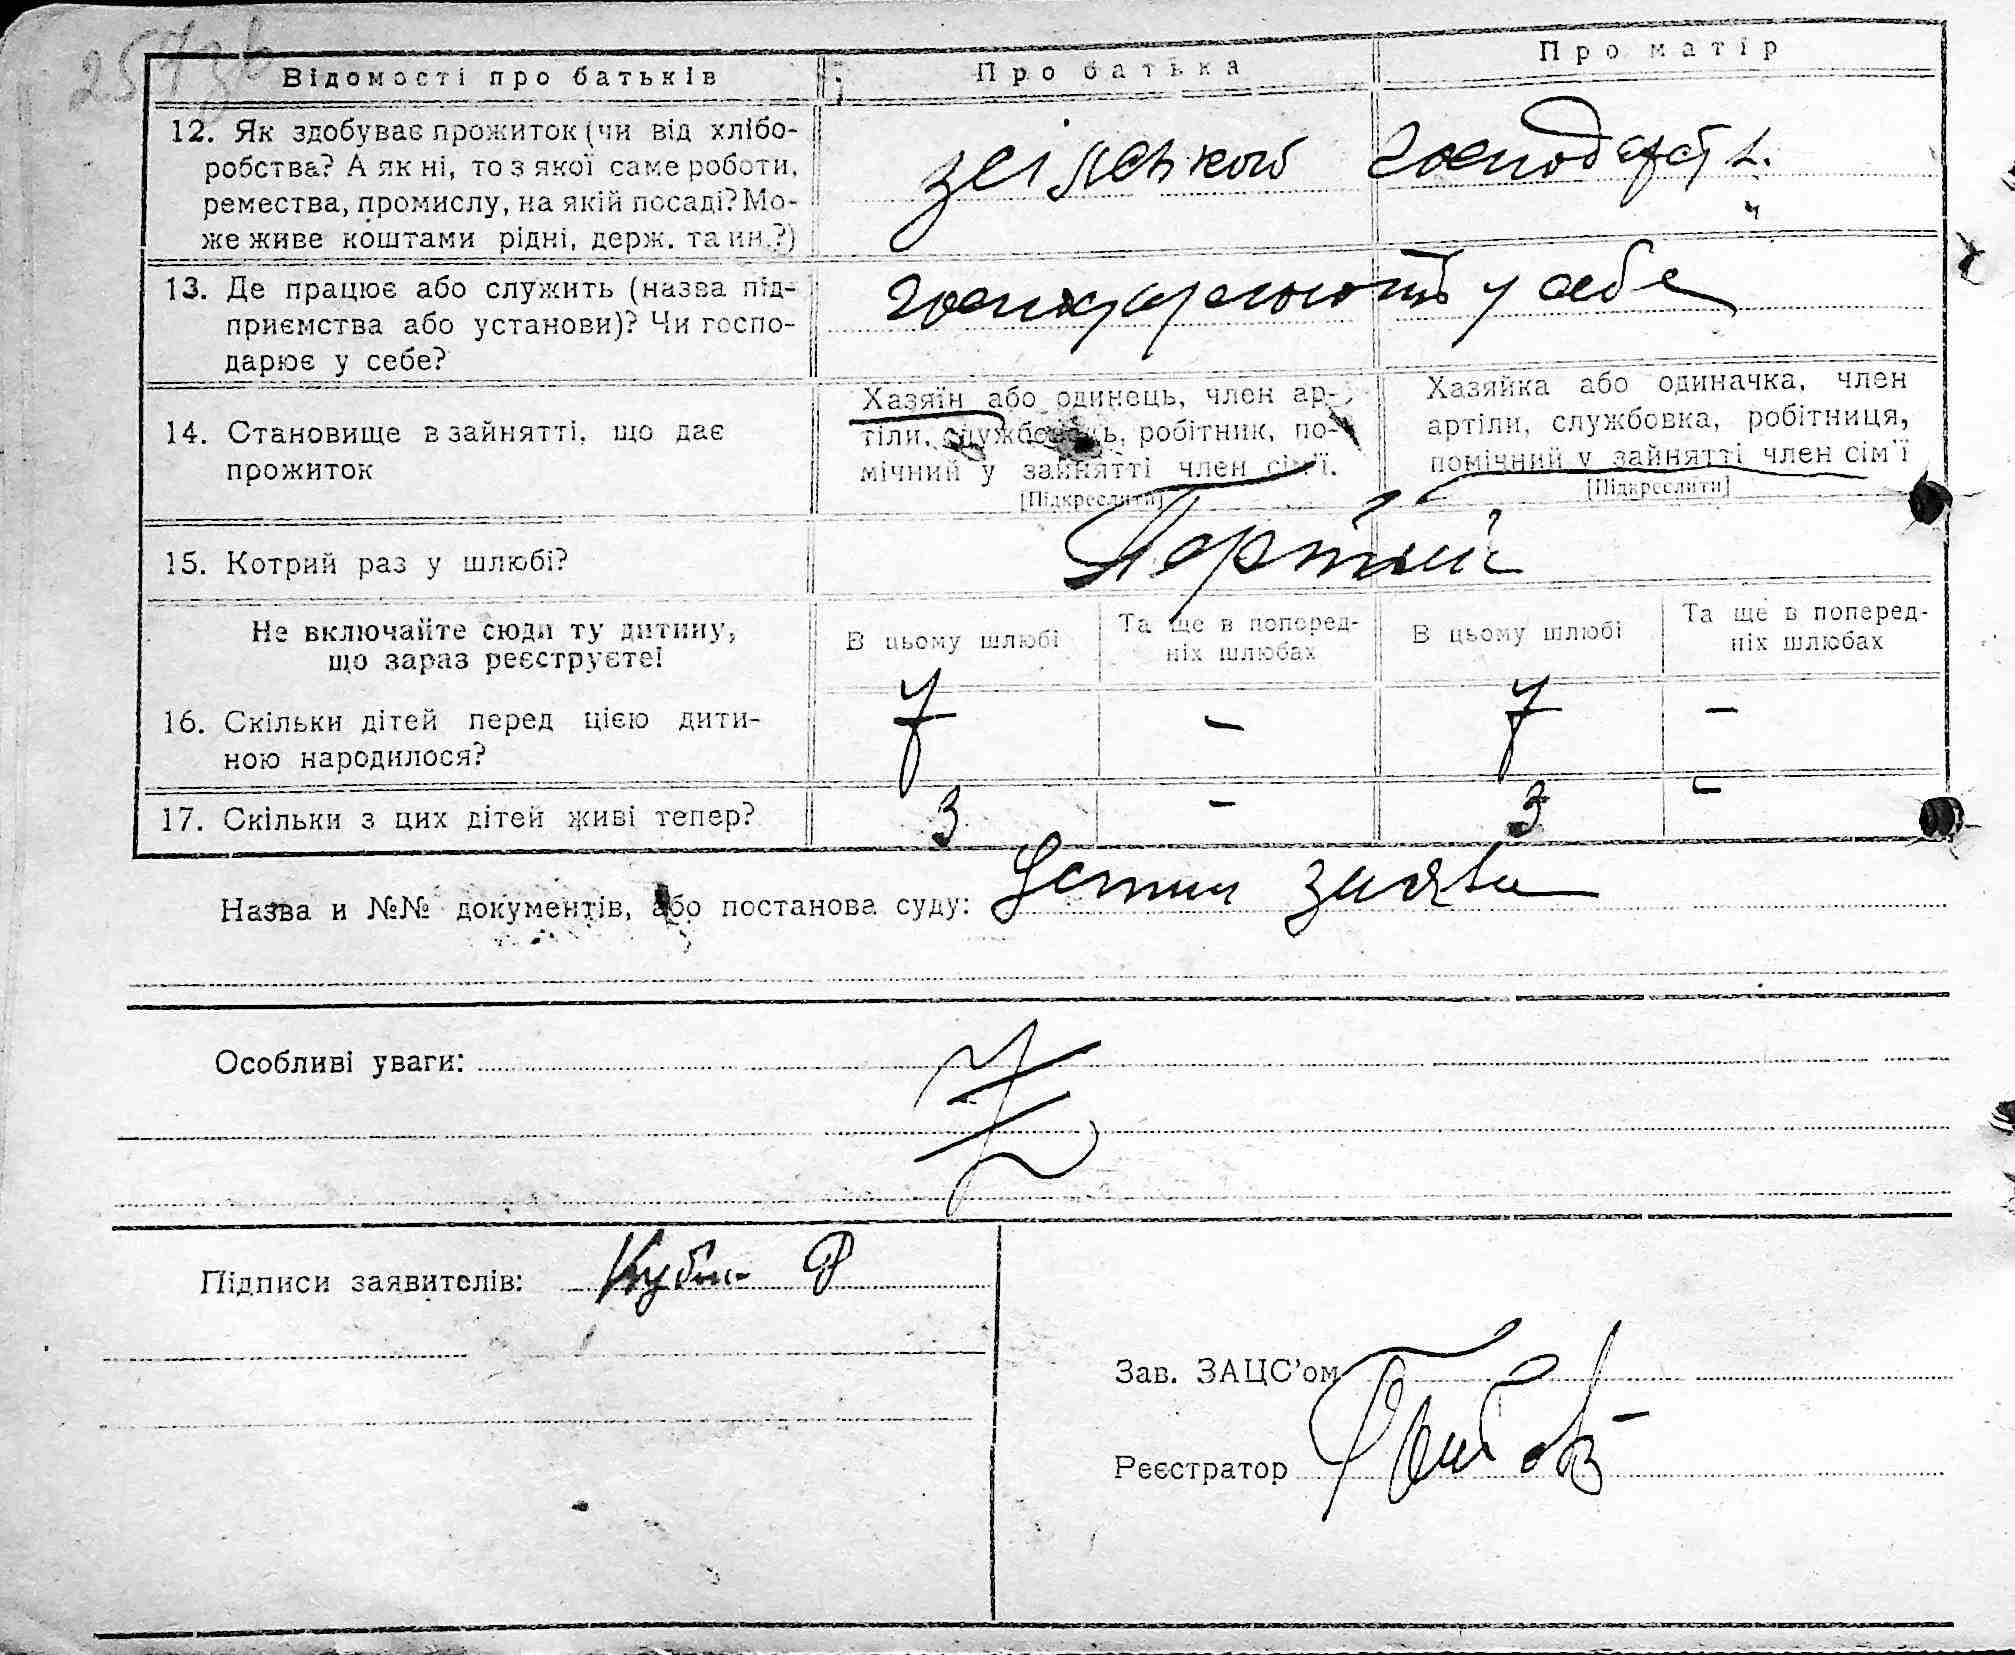 257 зв
Відомості про батьків
Про батька
Про матір
12. Як здобуває прожиток (чи від хлібо-
робства? А як ні, то з якої саме роботи,
ремества, промислу, на якій посаді? Мо-
же живе коштами рідні, держ. та ин.?)
з сільського господарст.
13. Де працює або служить (назва під-
приємства або установи)? Чи госпо-
дарює у себе?
господарюють у себе
14. Становище в зайнятті, що дає
прожиток
Хазяїн або одинець, член ар-
тіли, службовець, робітник, по-
мічний у зайнятті член сім'ї.
[Підкреслити]
Хазяйка або одиначка, член
артіли, службовка, робітниця,
помічний у зайнятті член сім'ї
[Підкреслити]
15. Котрий раз у шлюбі?
Не включайте сюди ту дитину,
що зараз реєструєте!
В цьому шлюбі
Та ще в поперед-
ніх шлюбах
В цьому шлюбі
Та ще в поперед-
ніх шлюбах
16. Скільки дітей перед цією дити-
ною народилося?
7 - 7 -
17. Скільки з цих дітей живі тепер?
3 - 3 -
Назва и №№ документів, або постанова суду: Устна заява
Особливі уваги:
Підписи заявителів:
Зав. ЗАЦС'ом
Реєстратор